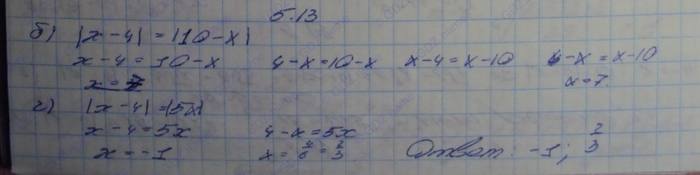 5.13
б) |x-4| = |10-x|
x-4=10-x 4-x=10-x x-4=x-10 4-x=x-10
x=7 x=7.
г) |x-4|=|5x|
x-4=5x 4-x=5x
x=-1 x=4/6=2/3 Ответ: -1; 2/3